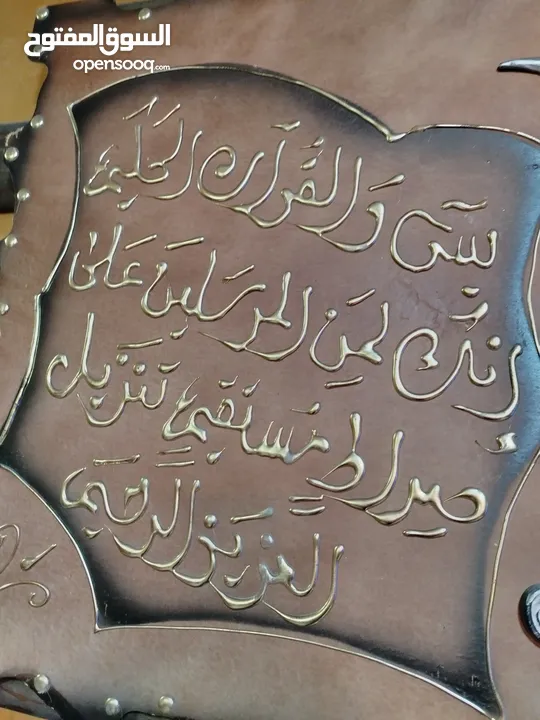 السوق المفتوح
opensooq.com
يسى وَالقُرآن الحَكيم
إنكَ لَمِن المرسَلينَ عَلىٰ
صِراطٍ مُستَقيمٍ تَنزيل
العَزيز الرحيم